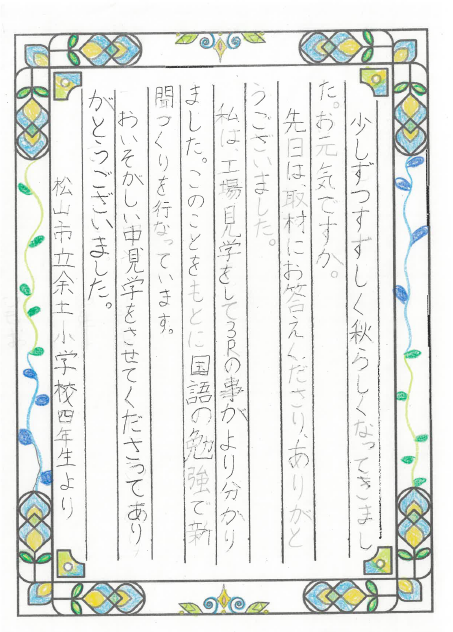 少しずつすずしく秋らしくなってきまし
た。お元気ですか。
先日は、取材にお答えくださり、ありがと
うございました。
私は工場見学をして3Rの事がより分かり
ました。このことをもとに国語の勉強で新
聞づくりを行なっています。
おいそかしい中見学をさせてくださってあり
がとうございました。
松山市立余土小学校四年生より